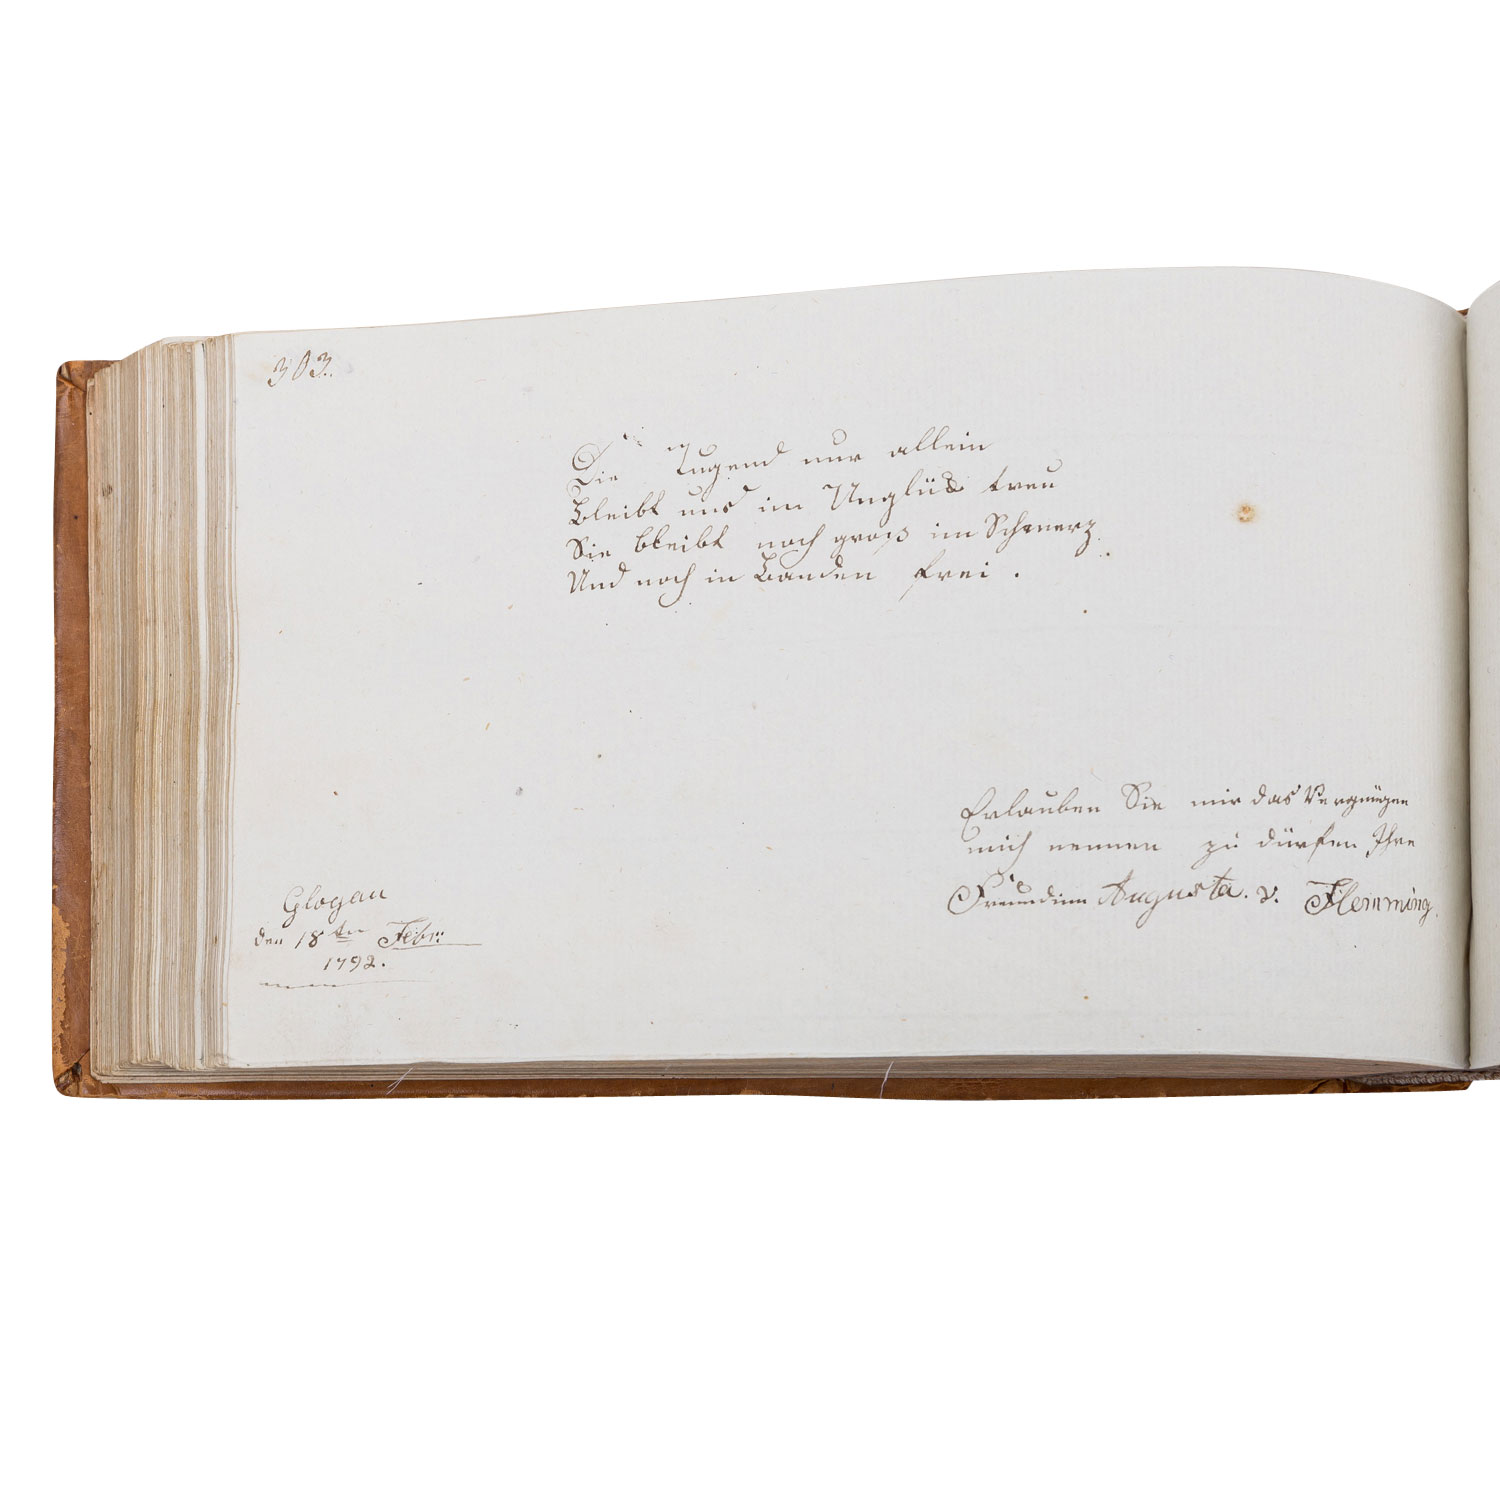 303.
Die Tugend nur allein
Bleibt uns im Unglück treu
Sie bleibt noch groß im Schmerz
Und noch in Banden frei.
Erlauben Sie mir das Vergnügen
mich nennen zu dürfen Ihre
Freundinn Augusta. v. Flemming.
Glogau
den 18ten Febr:
1792.